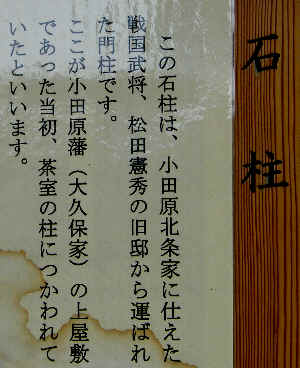 石柱
この石柱は、小田原北条家に仕えた
戦国武将、松田憲秀の旧邸から運ばれ
た門柱です。
ここが小田原藩（大久保家）の上屋敷
であった当初、茶室の柱につかわれて
いたといいます。